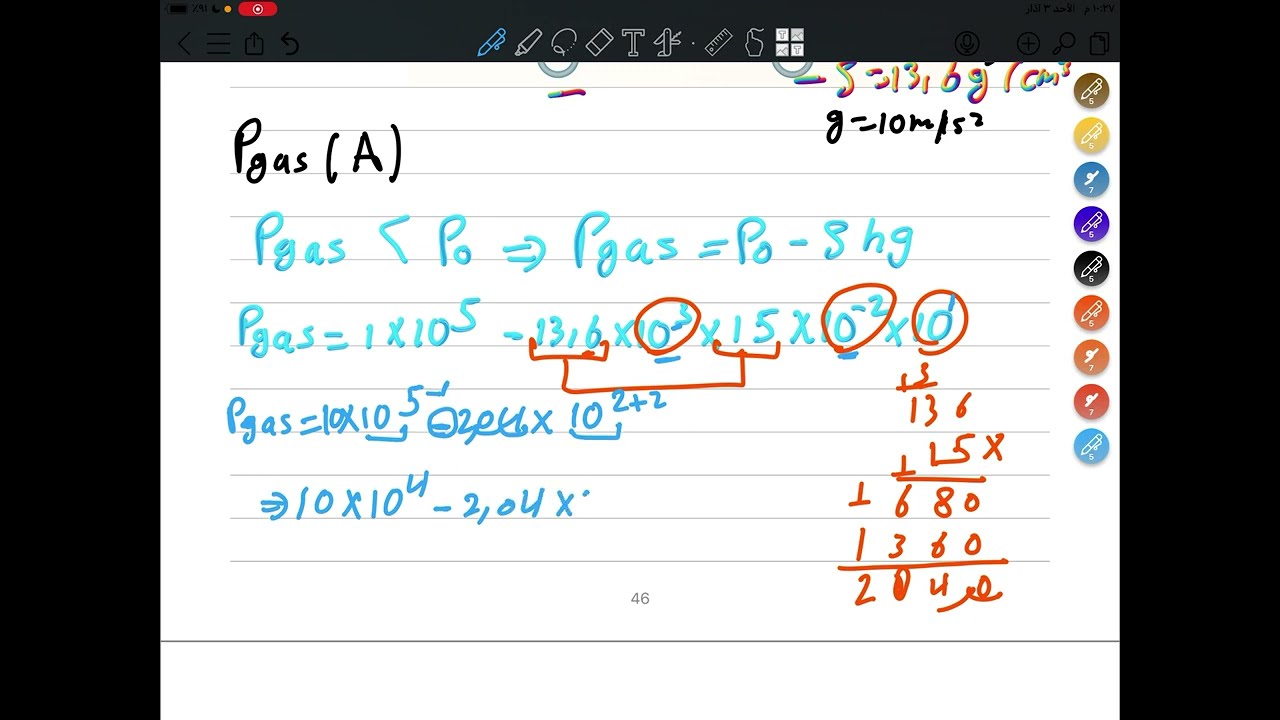 ٪٩١
١٠:٣٧ م الأحد ٣ آذار
– ρ=13,6g/cm³
g=10m/s²
Pgas (A)
Pgas < P₀ ⇒ Pgas = P₀ – ρhg
Pgas = 1×10⁵ – 13,6×10³×15×10⁻²×10¹
Pgas = 10×10⁵⁻¹ – 2,04× 10²⁺²
⇒ 10×10⁴ – 2,04×
+3
136
15×
1
1680
1360
2040
46